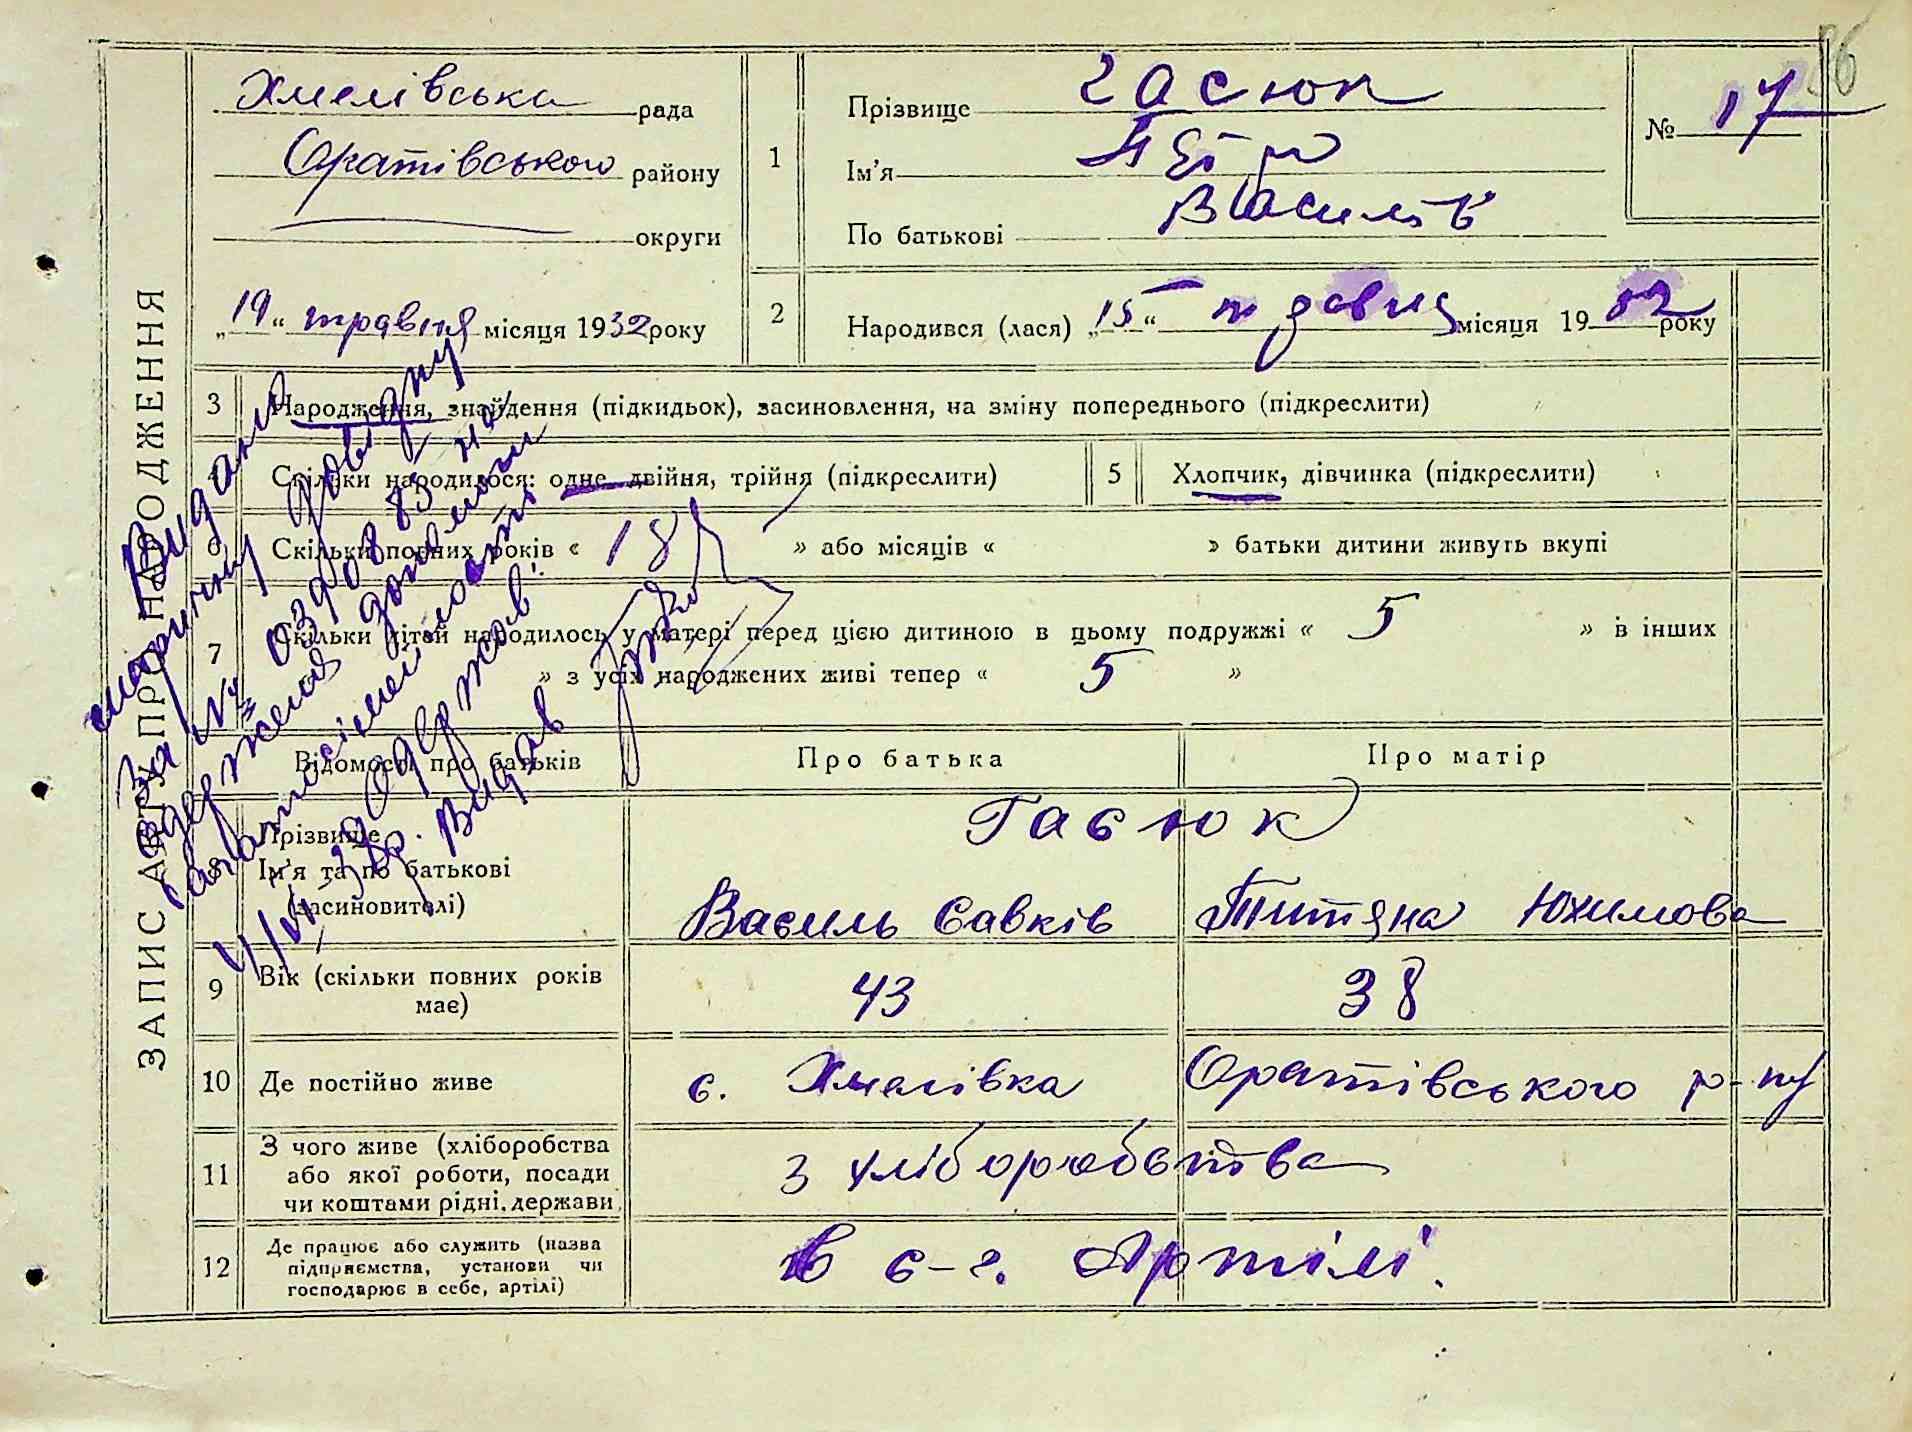 ЗАПИС АКТУ ПРО НАРОДЖЕННЯ
Хмелівська рада
Оратівського району
округи
„19“ травня місяця 1932 року
1
Прізвище Гасюк
Ім'я Петро
По батькові Василів
№ 17
2
Народився (лася) „15“ місяця 1932 року
3 Народження, знайдення (підкидьок), засиновлення, на зміну попереднього (підкреслити)
4 Скільки народилося: одне, двійня, трійня (підкреслити)
5 Хлопчик, дівчинка (підкреслити)
6 Скільки повних років « 18 » або місяців « » батьки дитини живуть вкупі
7 Скільки дітей народилось у матері перед цією дитиною в цьому подружжі « 5 » в інших
» з усіх народжених живі тепер « 5 »
Відомості про батьків
Про батька
Про матір
8 Прізвище
Ім'я та по батькові
(засиновителі)
Гасюк
Василь Савків
Титяна Юхимова
9 Вік (скільки повних років має)
43
38
10 Де постійно живе
с. Хмелівка Оратівського р-ну
11 З чого живе (хліборобства
або якої роботи, посади
чи коштами рідні, держави
З хліборобства
12 Де працює або служить (назва
підприємства, установи чи
господарює в себе, артілі)
В с-г. Артілі.
Видани
довідку
За №
одержав:
Видав